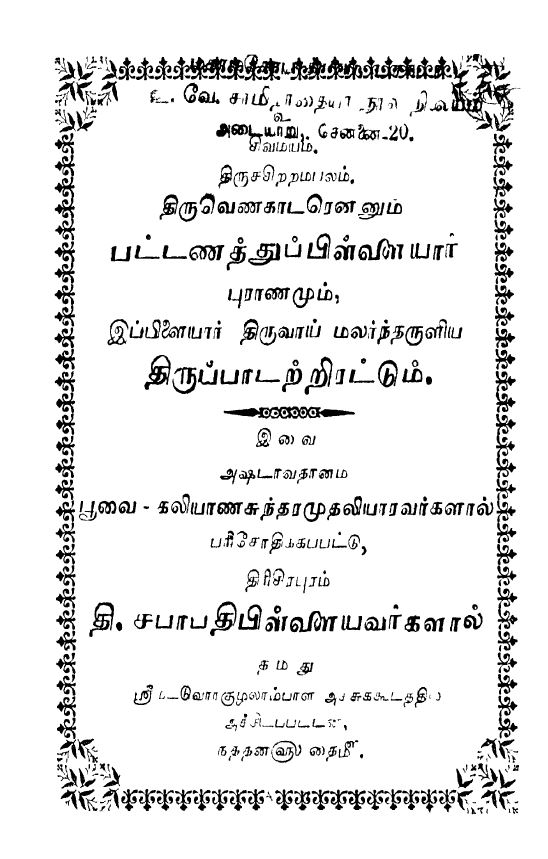 உ. வே. சாமிநாதையர் நூல் நிலையம்
உ
அடையாறு, சென்னை-20.
சிவமயம்.
திருசசிற்றமபலம்.
திருவெணகாடரெனனும்
பட்டணத்துப்பிள்ளையார்
புராணமும்,
இப்பிள்ளையார் திருவாய் மலர்ந்தருளிய
திருப்பாடற்றிரட்டும்.
இவை
அஷ்டாவதானம
பூவை - கலியாணசுந்தரமுதலியாரவர்களால்
பரிசோதிக்கபபட்டு,
திரிசிரபுரம்
தி. சபாபதிபிள்ளையவர்களால்
தமது
ஸ்ரீ
அச்சிடபபட்டன,
நந்தனஹு தைமீ.